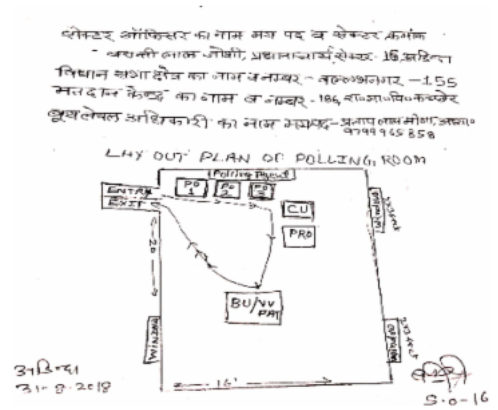 सेक्टर ऑफिसर का नाम मय पद व सेक्टर क्रमांक
लाल जोशी, प्रधानाचार्य सेक्टर 16
विधान सभा क्षेत्र का नाम व नम्बर - वल्लभनगर - 155
मतदान केन्द्र का नाम व नम्बर - 186, रा०मा०वि०
बूथ लेवल अधिकारी का नाम मय पद - प्रताप लाल मीणा,
9799965858
LAY OUT PLAN OF POLLING ROOM
Polling
ENTRY
EXIT
PO 1
PO 2
PO 3
CU
PRO
BU/VV PAT
20
WINDOW
WINDOW
WINDOW
16'
31-8-2018
S.O-16